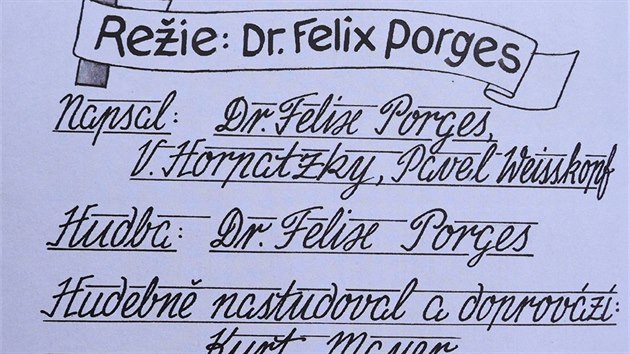 Režie: Dr. Felix Porges
Napsal: Dr. Felix Porges,
V. Horpatzky, Pavel Weisskopf
Hudba: Dr. Felix Porges
Hudebně nastudoval a doprovází:
Kurt Mayer